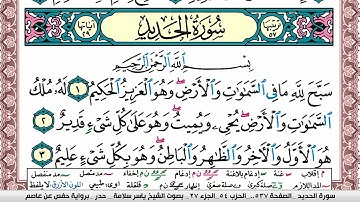 سُورَةُ الْحَدِيدِ
بِسْمِ اللَّهِ الرَّحْمَٰنِ الرَّحِيمِ
سَبَّحَ لِلَّهِ مَا فِي السَّمَاوَاتِ وَالْأَرْضِ وَهُوَ الْعَزِيزُ الْحَكِيمُ ١ لَهُ مُلْكُ
السَّمَاوَاتِ وَالْأَرْضِ يُحْيِي وَيُمِيتُ وَهُوَ عَلَىٰ كُلِّ شَيْءٍ قَدِيرٌ ٢
هُوَ الْأَوَّلُ وَالْآخِرُ وَالظَّاهِرُ وَالْبَاطِنُ وَهُوَ بِكُلِّ شَيْءٍ عَلِيمٌ ٣
سورة الحديد الصفحة ٥٣٧ الحزب ٥٤ الجزء ٢٧ بصوت الشيخ ياسر سلامة حدر برواية حفص عن عاصم